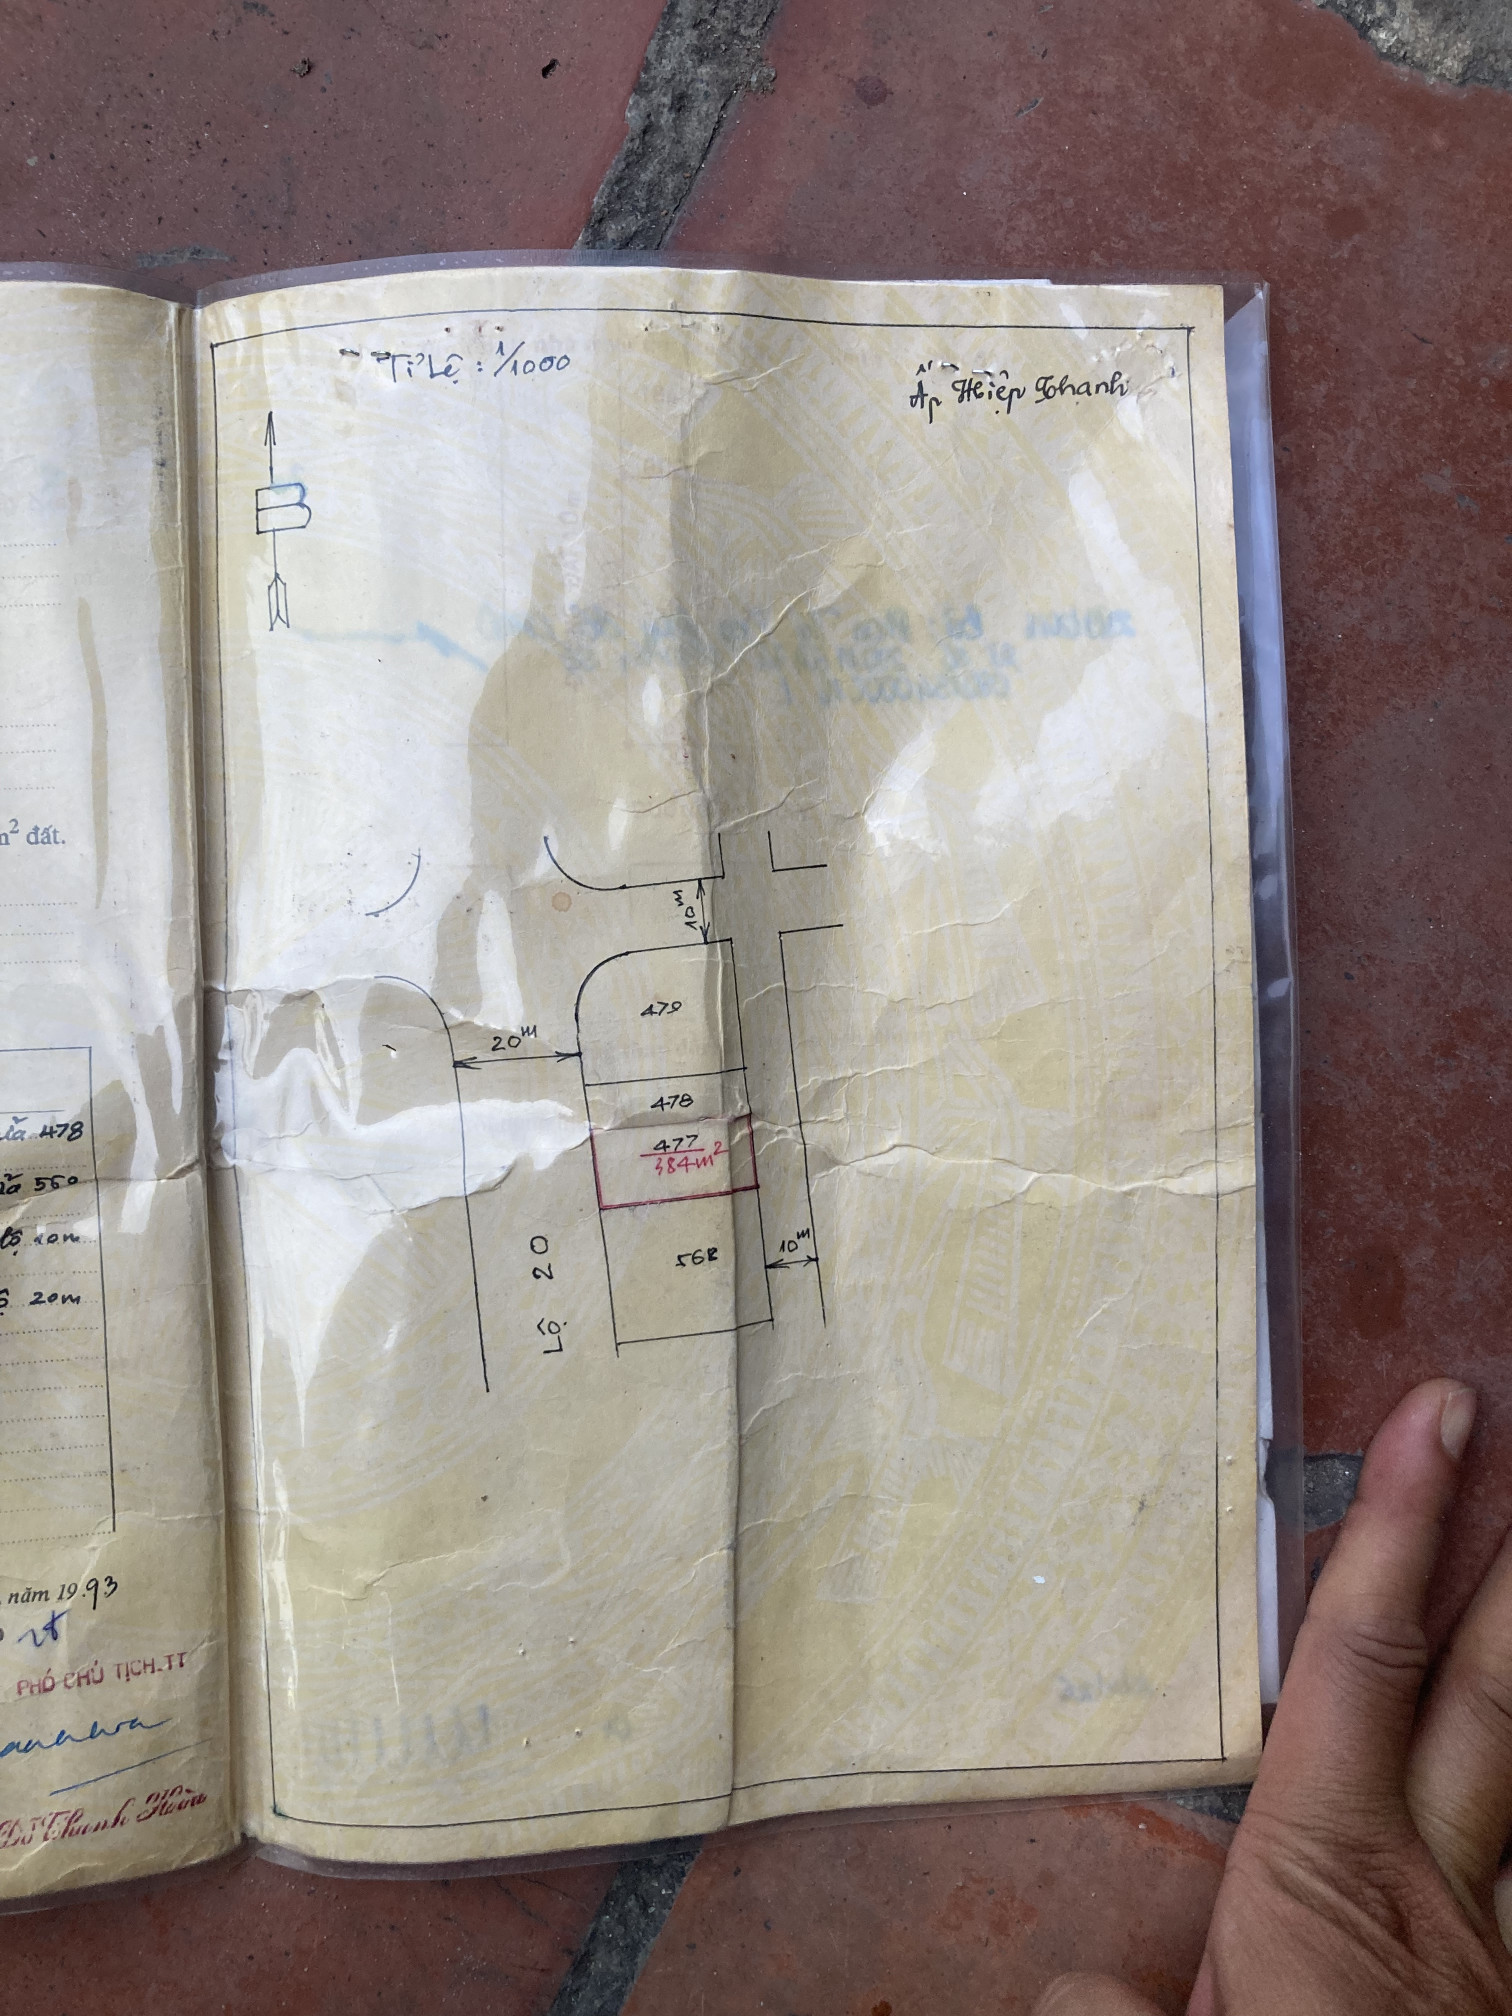 m² đất.
478
560
lộ 10m
20m
năm 19.93
PHÓ CHỦ TỊCH.TT
Tỉ Lệ : 1/1000
Ấp Hiệp Thạnh
B
10m
479
20m
478
477
384m²
10m
LỘ 20